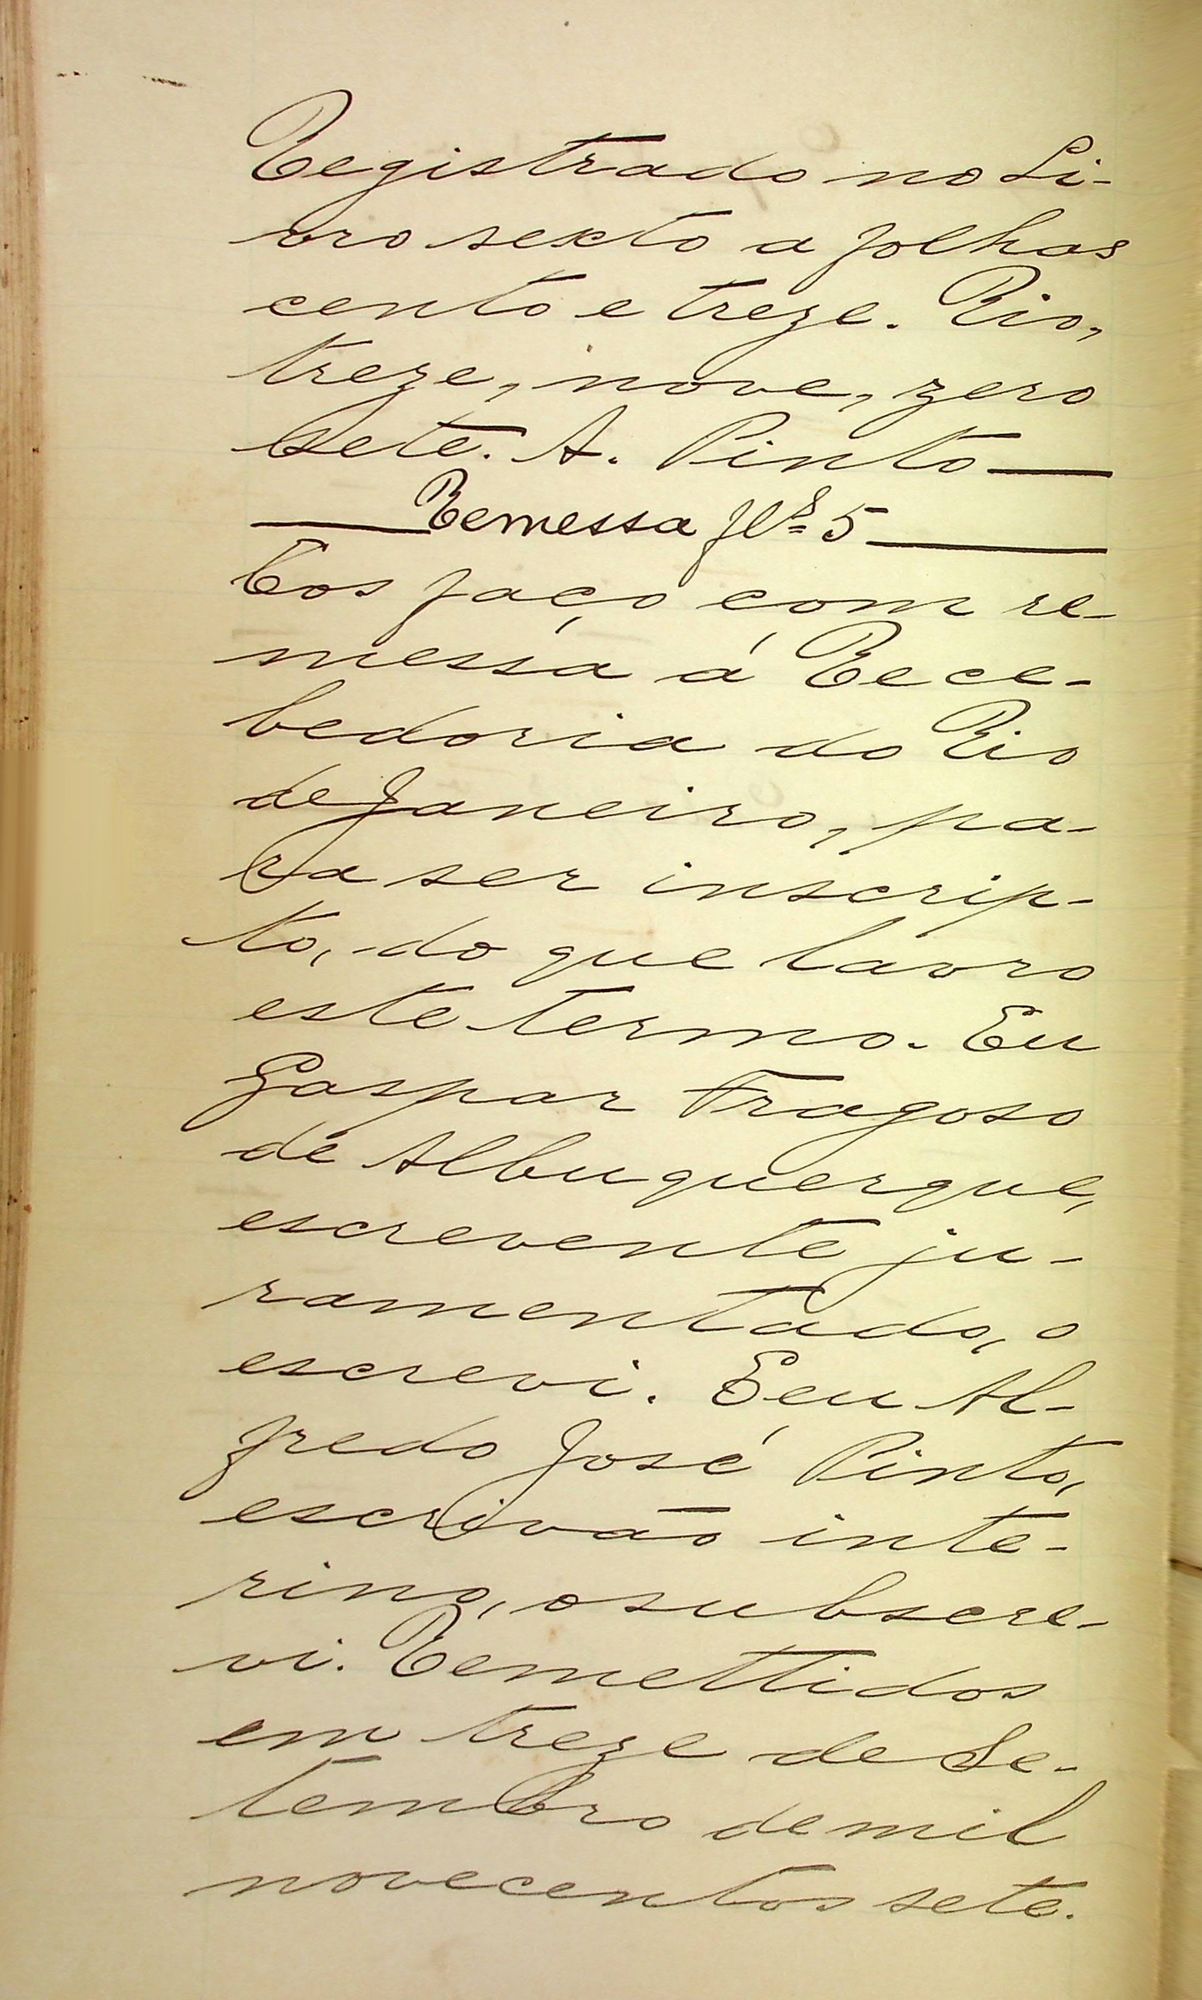 Registrado no Li-
vro sexto a folhas
cento e treze. Rio,
treze, nove, zero
sete. A. Pinto
Remessa fls 5
Eos faço com re-
messa á Rece-
bedoria do Rio
de Janeiro, pa-
ra ser inscrip-
to, do que lavro
este termo. Eu
Gaspar Fragoso
de Albuquerque,
escrevente ju-
ramentado, o
escrevi. E eu Al-
fredo José Pinto,
escrivão inte-
rino, o subscre-
vi. Remettidos
em treze de Se-
tembro de mil
novecentos sete.